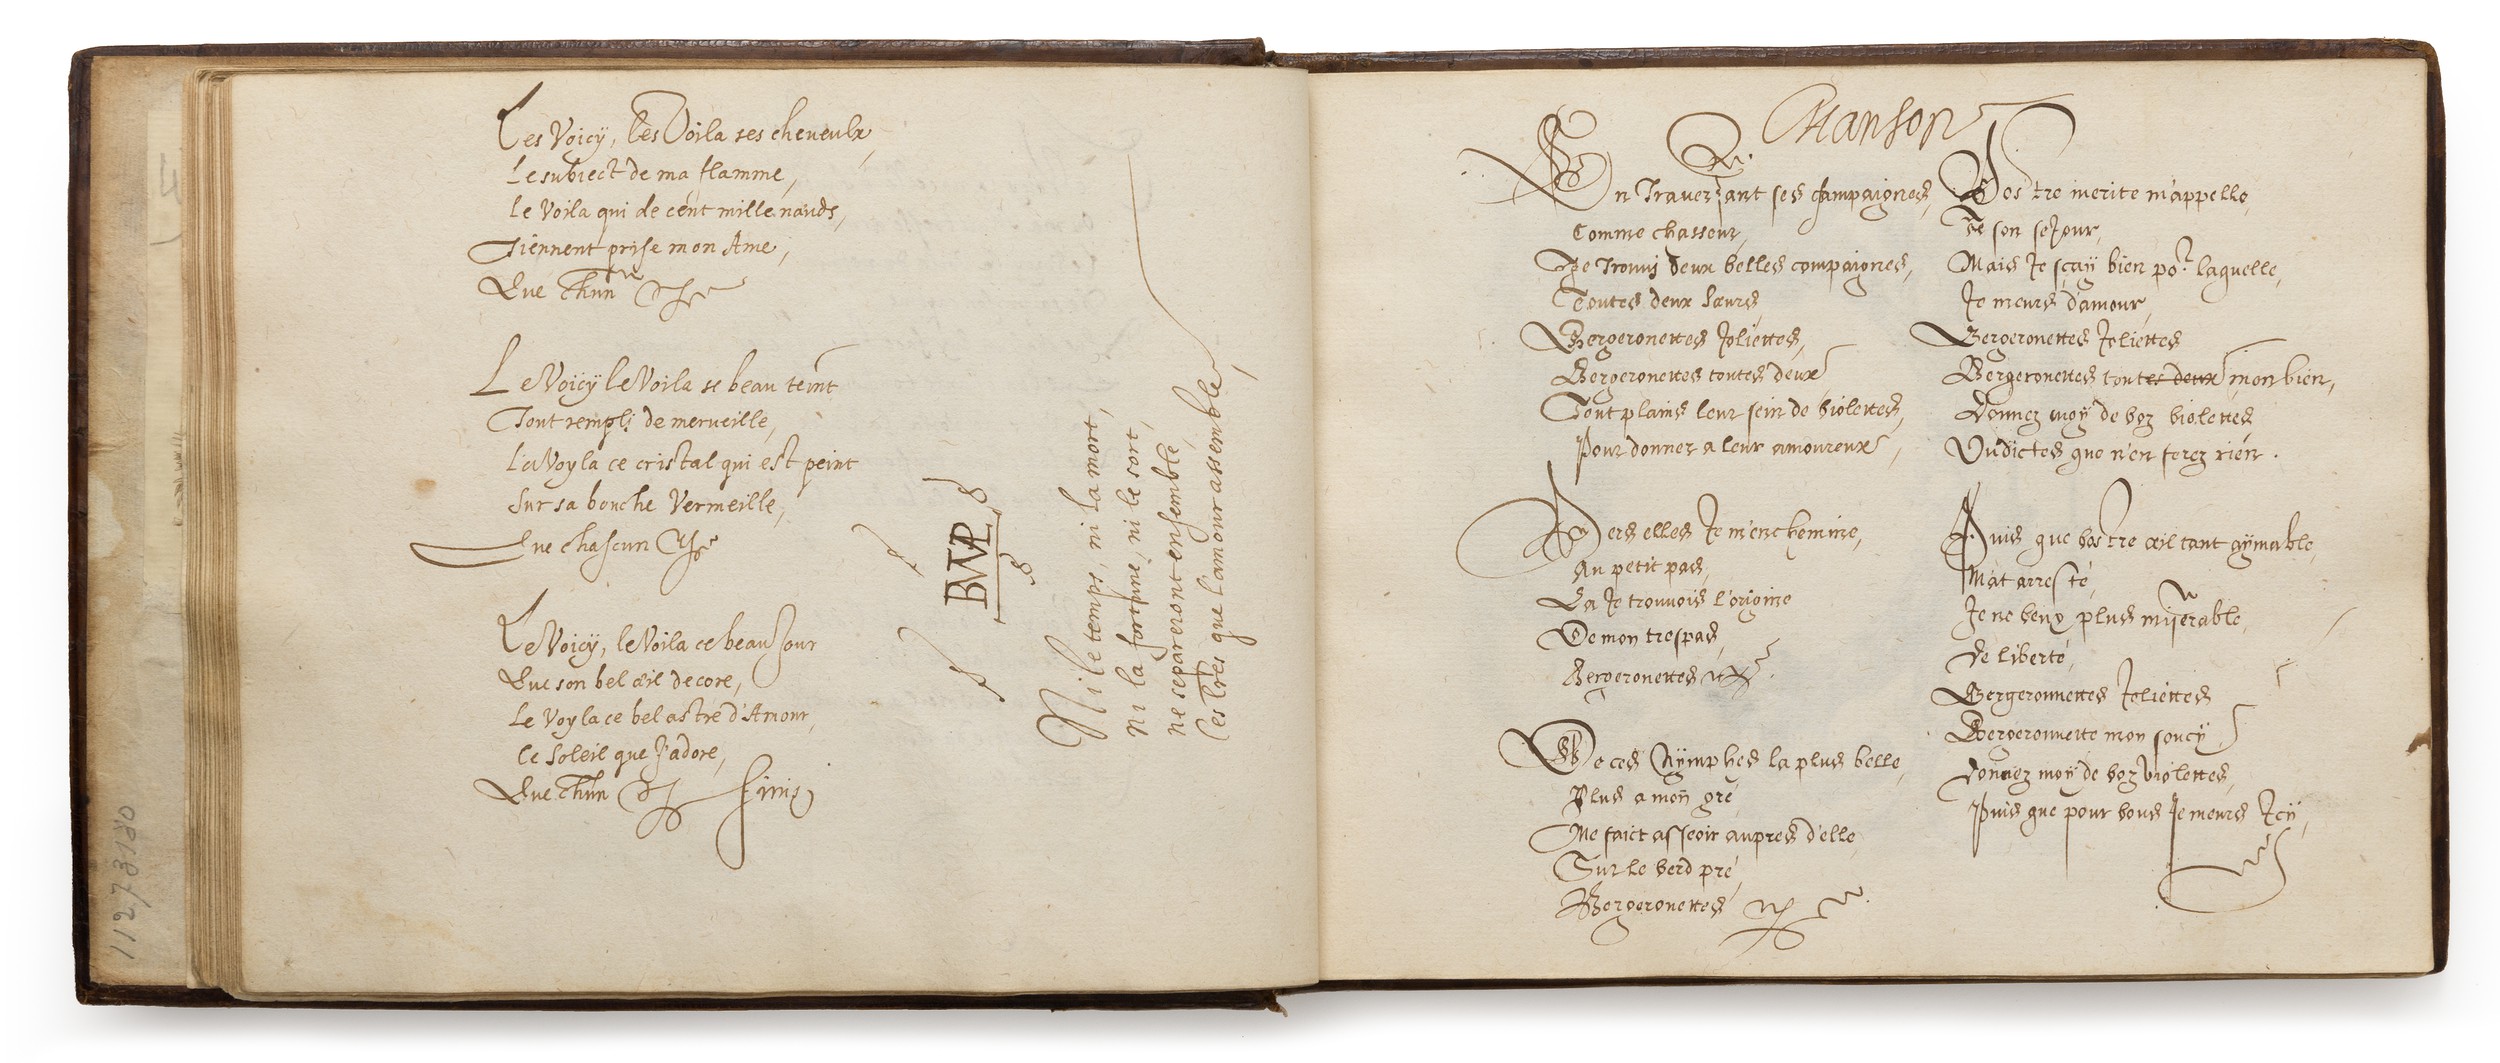 Les Voicÿ, les Voila ses cheveulx,
Le subiect de ma flamme,
Le Voila qui de cent mille nauds,
Tiennent prise mon Ame,
Que chun
Le Voicÿ le Voila se beau teint
Tout rempli de merveille,
La Voyla ce cristal qui est peint
Sur sa bouche Vermeille,
Que chascun
Le Voicÿ, le Voila ce beau Jour
Que son bel œil decore,
Le Voyla ce bel astre d'Amour,
Ce Soleil que J'adore,
Que chun finis
BWP
Ni le temps, ni la mort,
Ni la fortune, ni le sort,
Ne separeront ensemble,
Ces Tres que l'amour assemble,
1127 3180
Chanson
En Traversant ses campaignes,
Comme chasseur,
Je Trouvj deux belles compaignes,
Toutes deux sœurs,
Bergeronettes Joliettes,
Bergeronettes toutes deux
Tout plains leur sein de violettes,
Pour donner a leur amoureux,
Vers elles Je m'enchemine,
Au petit pas,
La Je trouvois l'origine
De mon trespas,
Bergeronettes
De ces Nÿmphes la plus belle,
Plus a mon gré
Me faict asseoir aupres d'elle
Sur le verd pré,
Bergeronettes
Vostre merite m'appelle,
De son seJour,
Mais Je sçaÿ bien por laquelle,
Je meurs d'amour,
Bergeronettes Joliettes
Bergeronettes toutes deux mon bien,
Donnez moÿ de voz violettes
Ou dictes que n'en ferez rien.
Puis que vostre œil tant aÿmable
M'at arresté,
Je ne veux plus miserable,
De liberté,
Bergeronnettes Joliettes
Bergeronnette mon soucÿ
Donnez moÿ de voz violettes,
Puis que pour vous Je meurs Jcÿ,